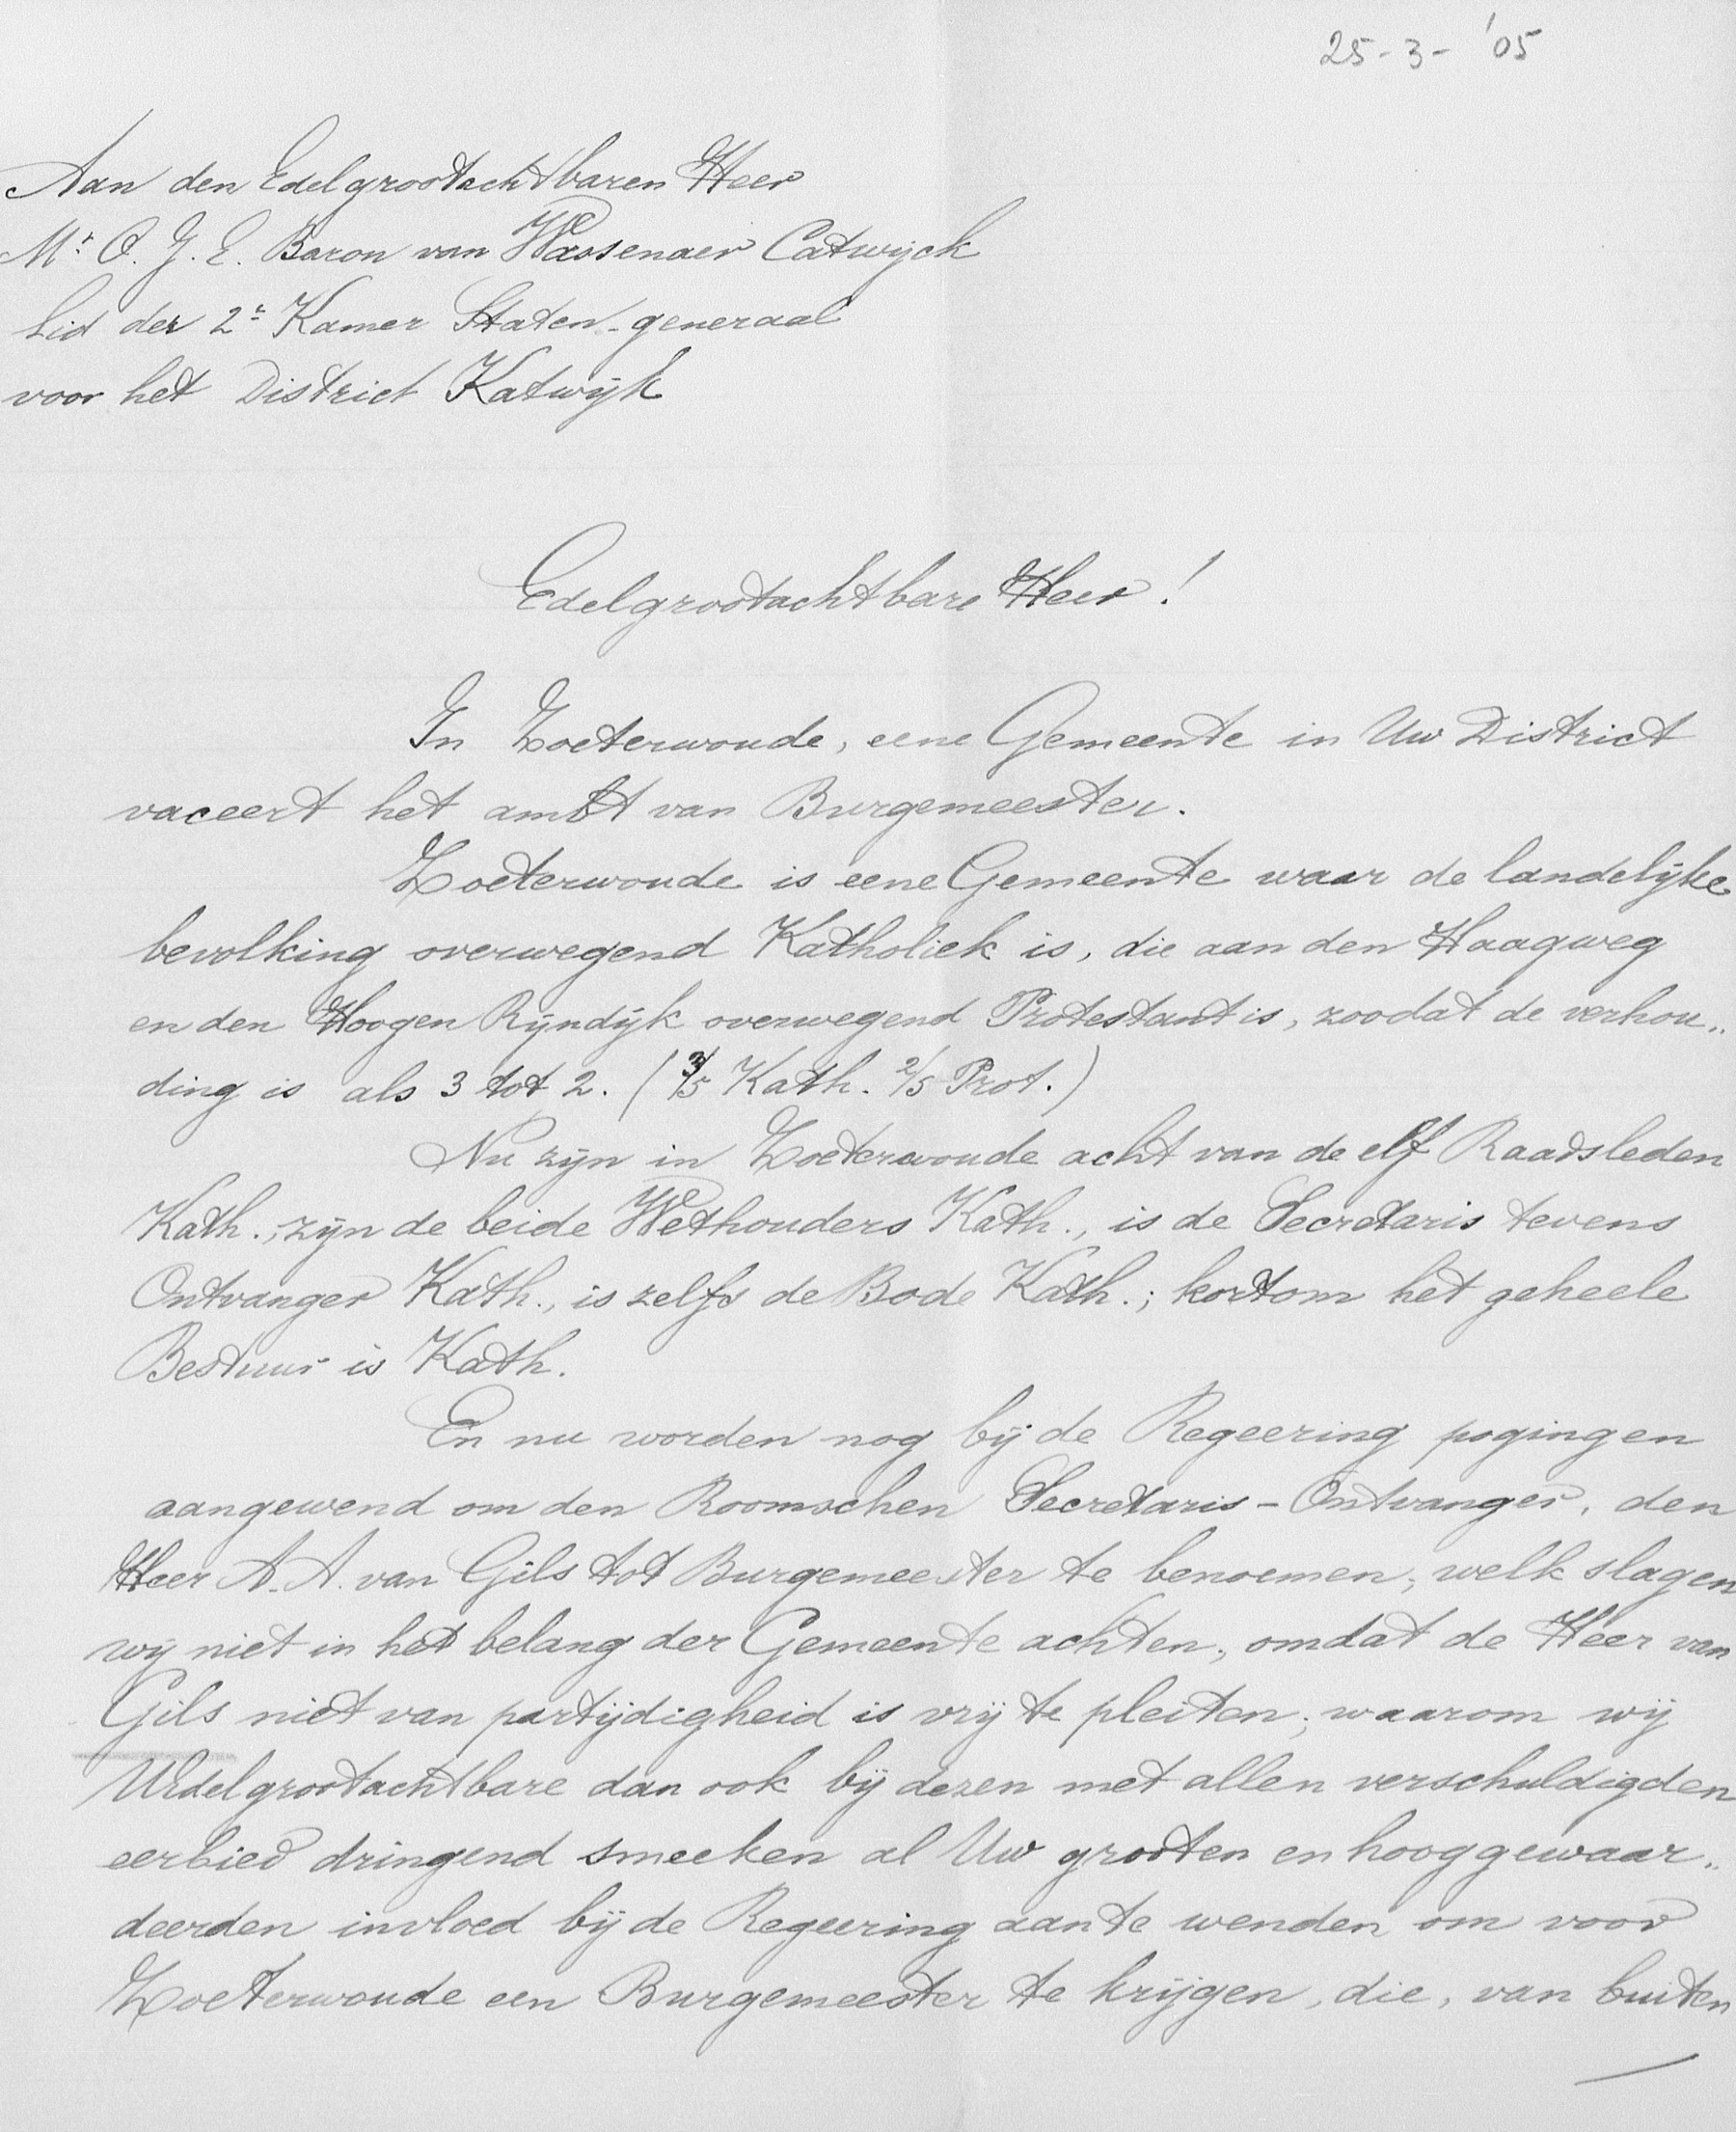 25-3-'05
Aan den Edelgrootachtbaren Heer
Mr. O. J. E. Baron van Wassenaer Catwijck
Lid der 2e Kamer Staten-generaal
voor het District Katwijk
Edelgrootachtbare Heer!
In Zoeterwoude, eene Gemeente in Uw District
vaceert het ambt van Burgemeester.
Zoeterwoude is eene Gemeente waar de landelijke
bevolking overwegend Katholiek is, die aan den Haagweg
en den Hoogen Rijndijk overwegend Protestant is, zoodat de verhou„
ding is als 3 tot 2. (3/5 Kath. 2/5 Prot.)
Nu zijn in Zoeterwoude acht van de elf Raadsleden
Kath., zijn de beide Wethouders Kath., is de Secretaris tevens
Ontvanger Kath., is zelfs de Bode Kath.; kortom het geheele
Bestuur is Kath.
En nu worden nog bij de Regeering pogingen
aangewend om den Roomschen Secretaris-Ontvanger, den
Heer A. A. van Gils tot Burgemeester te benoemen; welk slagen
wij niet in het belang der Gemeente achten; omdat de Heer van
Gils niet van partijdigheid is vrij te pleiten; waarom wij
UEdelgrootachtbare dan ook bij dezen met allen verschuldigden
eerbied dringend smeeken al Uw grooten en hooggewaar„
deerden invloed bij de Regeering aan te wenden om voor
Zoeterwoude een Burgemeester te krijgen, die, van buiten